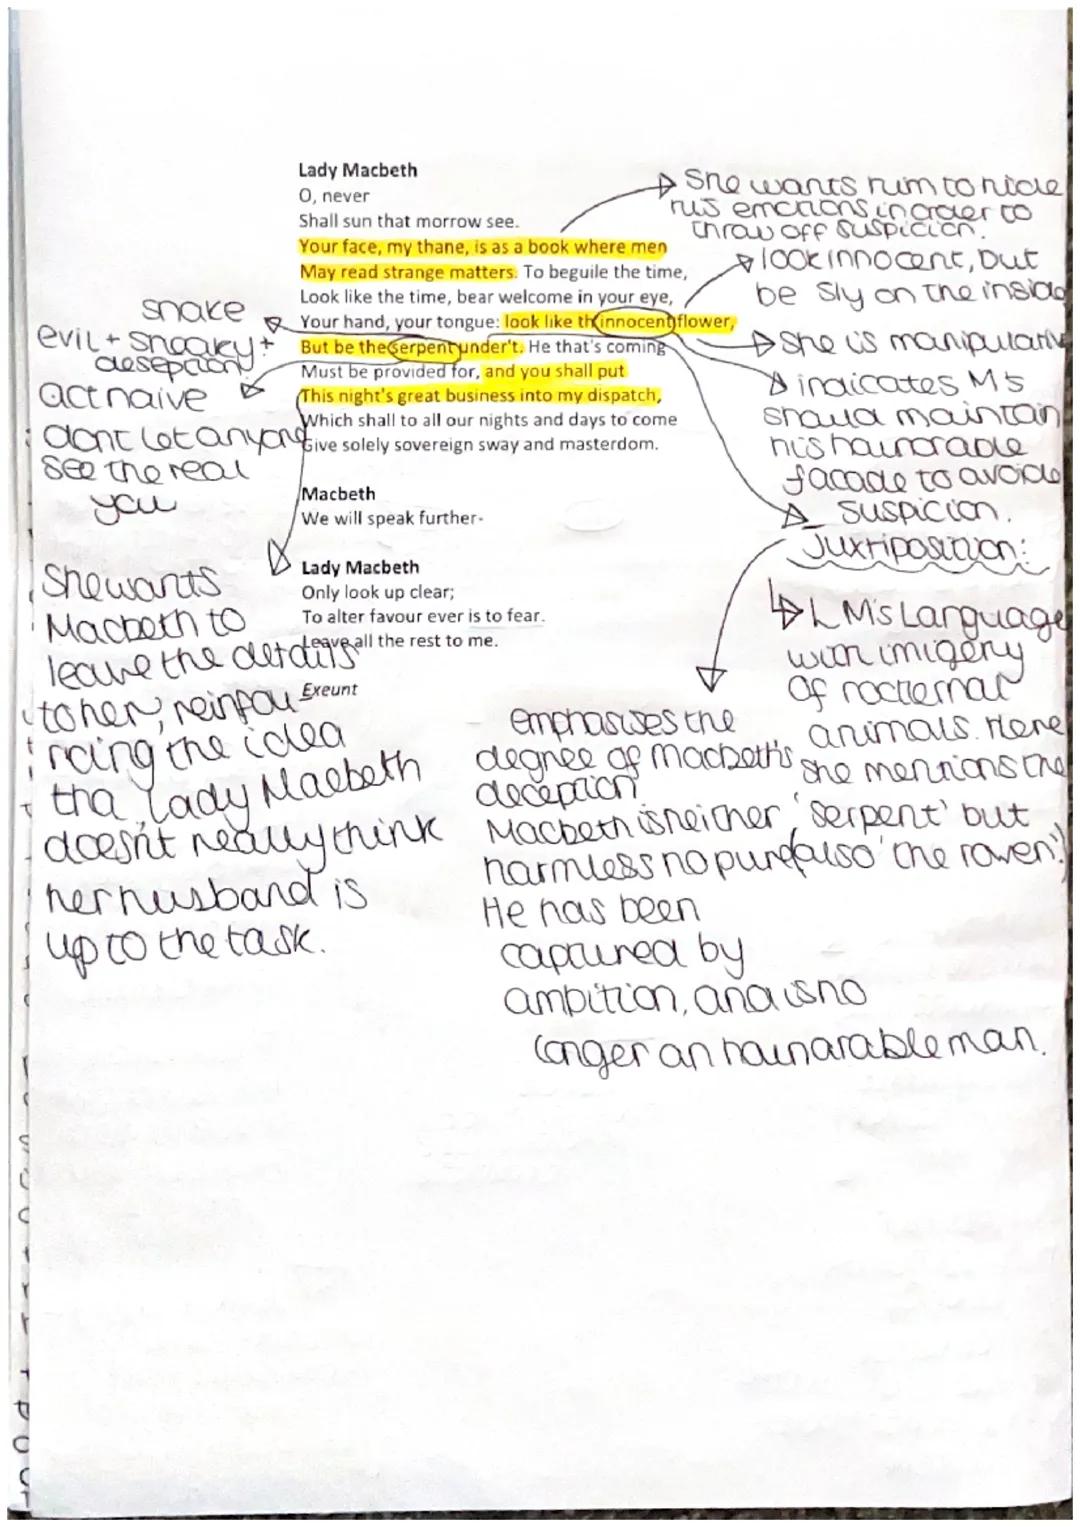 Lady Macbeth
O, never
Shall sun that morrow see.
Your face, my thane, is as a book where men
May read strange matters. To beguile the time,
Look like the time, bear welcome in your eye,
Your hand, your tongue: look like th innocent flower,
But be the serpent under't. He that's coming
Must be provided for, and you shall put
This night's great business into my dispatch,
Which shall to all our nights and days to come
Give solely sovereign sway and masterdom.
Macbeth
We will speak further-
Lady Macbeth
Only look up clear;
To alter favour ever is to fear.
Leave all the rest to me.
Exeunt
She wants him to hide
his emotions in order to
throw off suspicion.
look innocent, but
be sly on the inside
She is manipulativ
indicates M's
should maintain
his hounorable
facade to avoide
suspicion.
Juxtiposition:
LM's Language
with imigery
of nocternal
animals. Here
she mentions the
'serpent' but
also 'the raven'.)
emphasises the
degree of Macbeth's
deception
Macbeth is neither
harmless no pure
He has been
captured by
ambition, and is no
longer an hounarable man.
snake
evil + sneaky +
deseption
act naive
dont let anyone
see the real
you
She wants
Macbeth to
leave the details
to her, reinfou-
rcing the idea
tha Lady Macbeth
doesn't really think
her husband is
up to the task.